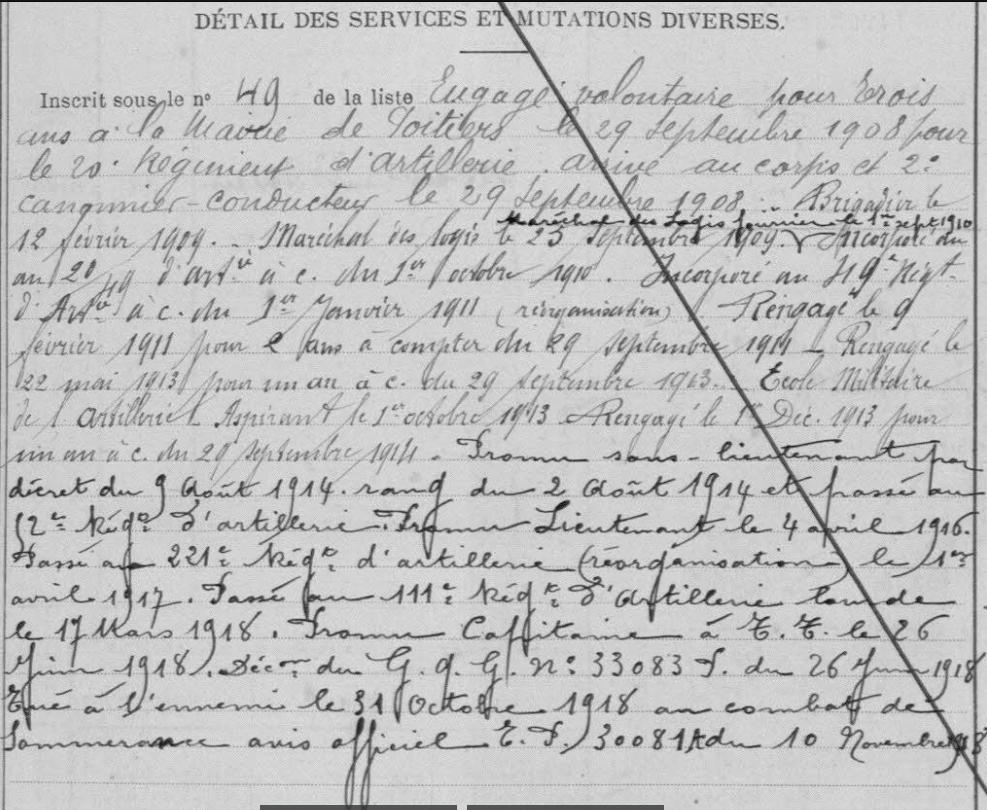 DÉTAIL DES SERVICES ET MUTATIONS DIVERSES.
Inscrit sous le n° 49 de la liste Engagé volontaire pour trois
ans à la Mairie de Poitiers le 29 septembre 1908 pour
le 20e Régiment d'artillerie. arrivé au corps et 2e
canonnier-conducteur le 29 septembre 1908. Brigadier le
Maréchal des Logis fourrier le 1er sept 1910
12 février 1909. Maréchal des logis le 25 septembre 1909. Incorporé du
au 49 d'artie à c. du 1er octobre 1910. Incorporé au 49e Régt
d'Artie à c. du 1er Janvier 1911 (réorganisation). Rengagé le 9
février 1911 pour 2 ans à compter du 29 septembre 1911 - Rengagé le
22 mai 1913 pour un an à c. du 29 septembre 1913. Ecole Militaire
de l'artillerie Aspirant le 1er octobre 1913. Rengagé le 1er Déc. 1913 pour
un an à c. du 29 septembre 1914. Promu sous-lieutenant par
décret du 9 Août 1914. rang du 2 Août 1914 et passé au
52e Régt d'artillerie. Promu Lieutenant le 4 avril 1916.
Passé au 221e Régt d'artillerie (réorganisation) le 1er
avril 1917. Passé au 111e Régt d'Artillerie lourde
le 17 Mars 1918. Promu Capitaine à T.T. le 26
Juin 1918. Décon du G.Q.G. N° 33083 P. du 26 Juin 1918
Tué à l'ennemi le 31 Octobre 1918 au combat de
Sommerance avis officiel E.P. 30081 du 10 Novembre 1918